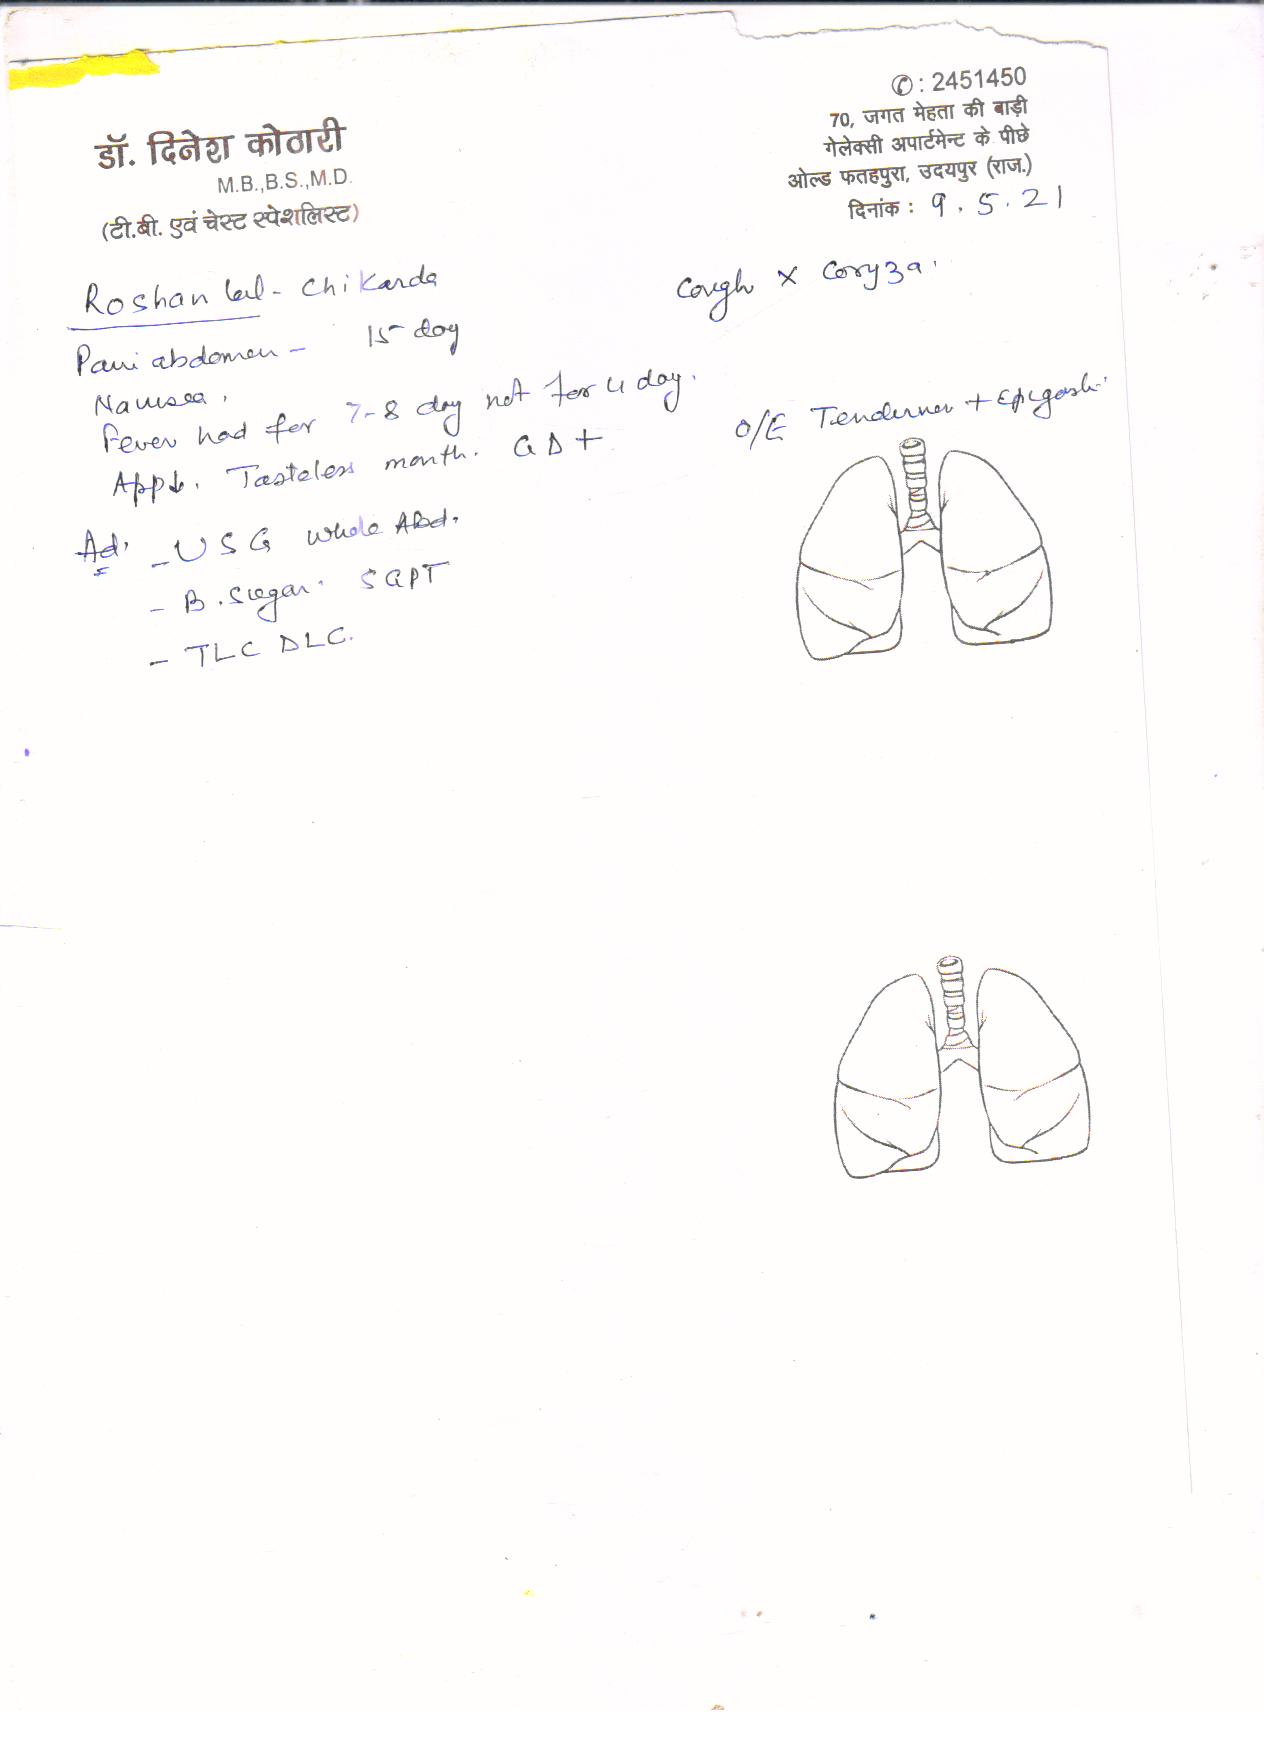 ✆ : 2451450
70, जगत मेहता की बाड़ी
गेलेक्सी अपार्टमेन्ट के पीछे
ओल्ड फतहपुरा, उदयपुर (राज.)
दिनांक : 9.5.21
डॉ. दिनेश कोठारी
M.B.,B.S.,M.D.
(टी.बी. एवं चेस्ट स्पेशलिस्ट)
Roshan lal - Chikarda
Cough x Coryza.
Pain abdomen - 15 day
Nausea,
Fever had for 7-8 day not for 4 day.
App↓. Tasteless mouth. GD+
O/E Tenderness + Epigastri
Ad. - USG whole Abd.
- B. Sugar. SGPT
- TLC DLC.